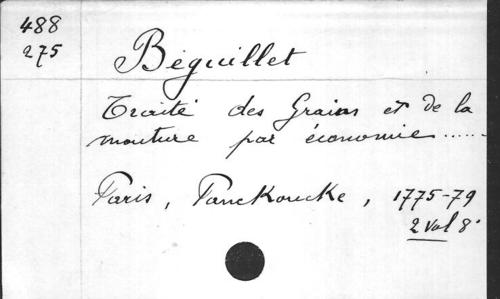 488
275
Béguillet
Traité des Grains et de la
mouture par économie ......
Paris, Panckoucke, 1775-79
2 vol 8°